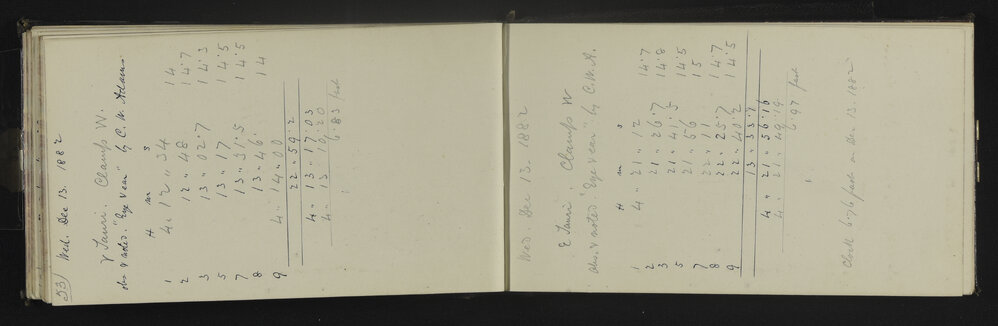 53) Wed. Dec 13. 1882
γ Tauri. Clamp W.
obs & noted. "Eye & ear" by C. W. Adams
H m s
1 4 " 12 " 34 14
2 12 " 48 14.7
3 13 " 02.7 14.3
5 13 " 17 14.5
7 13 " 31.5 14.5
8 13 " 46. 14
9 4 " 14 " 00
22 " 59.2
4 " 13 " 17.03
4 " 13 " 10.20
6.83 fast
Wed. Dec 13. 1882
ε Tauri. Clamp W
obs & noted. "Eye & ear" by C. W. A.
H m s
1 4 " 21 " 12 14.7
2 21 " 26.7 14.8
3 21 " 41.5 14.5
5 21 " 56 15
7 22 " 11 14.7
8 22 " 25.7 14.5
9 22 " 40.2
13 " 33.1
4 " 21 " 56.16
4 " 21 " 49.19
6.97 fast
Clock 6.76 fast on Dec 13. 1882